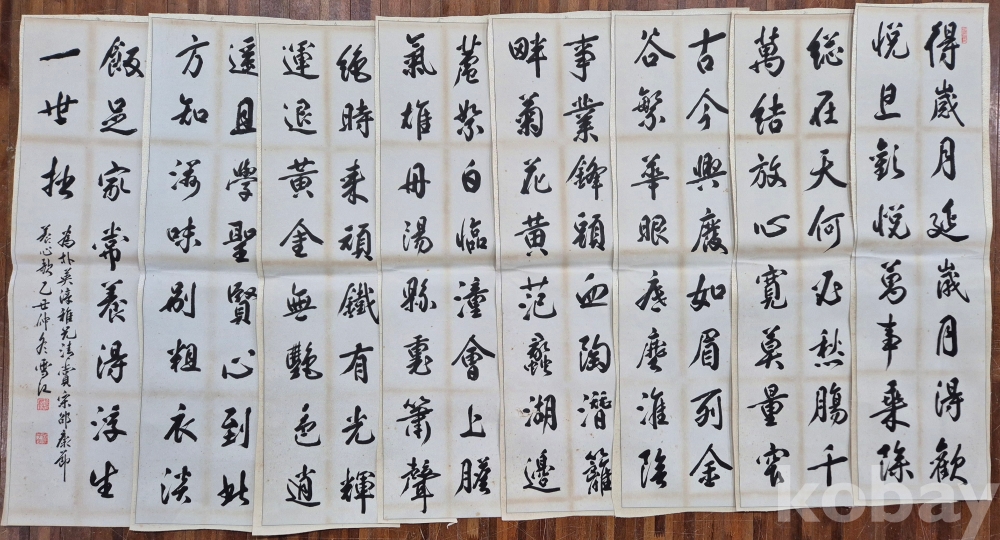 得歲月延歲月得歡
悅且歡悅萬事乗除
総在天何必愁腸千
萬結放心寬莫量窄
古今興廢如眉列金
谷繁華眼底塵淮陰
事業鋒頭血陶潛籬
畔菊花黃范蠡湖邊
蘆絮白臨潼會上膽
氣雄丹湯縣裏簫聲
絶時来頑鐵有光輝
運退黃金無艷色逍
遥且學聖賢心到此
方知滋味別粗衣淡
飯足家常養得浮生
一世拙
為朴英淳雅兄清賞宋邵康節
養心歌乙丑仲冬雪江
kobay